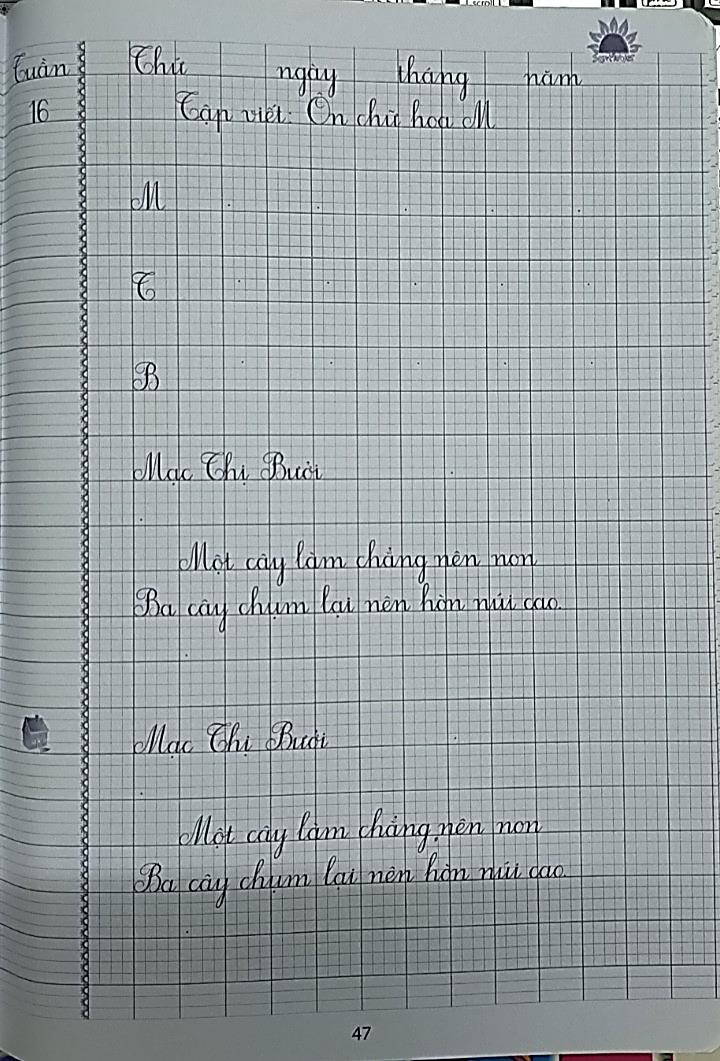 Tuần
16
Thứ ngày tháng năm
Tập viết: Ôn chữ hoa M
M
T
B
Mạc Thị Bưởi
Một cây làm chẳng nên non
Ba cây chụm lại nên hòn núi cao.
Mạc Thị Bưởi
Một cây làm chẳng nên non
Ba cây chụm lại nên hòn núi cao.
47